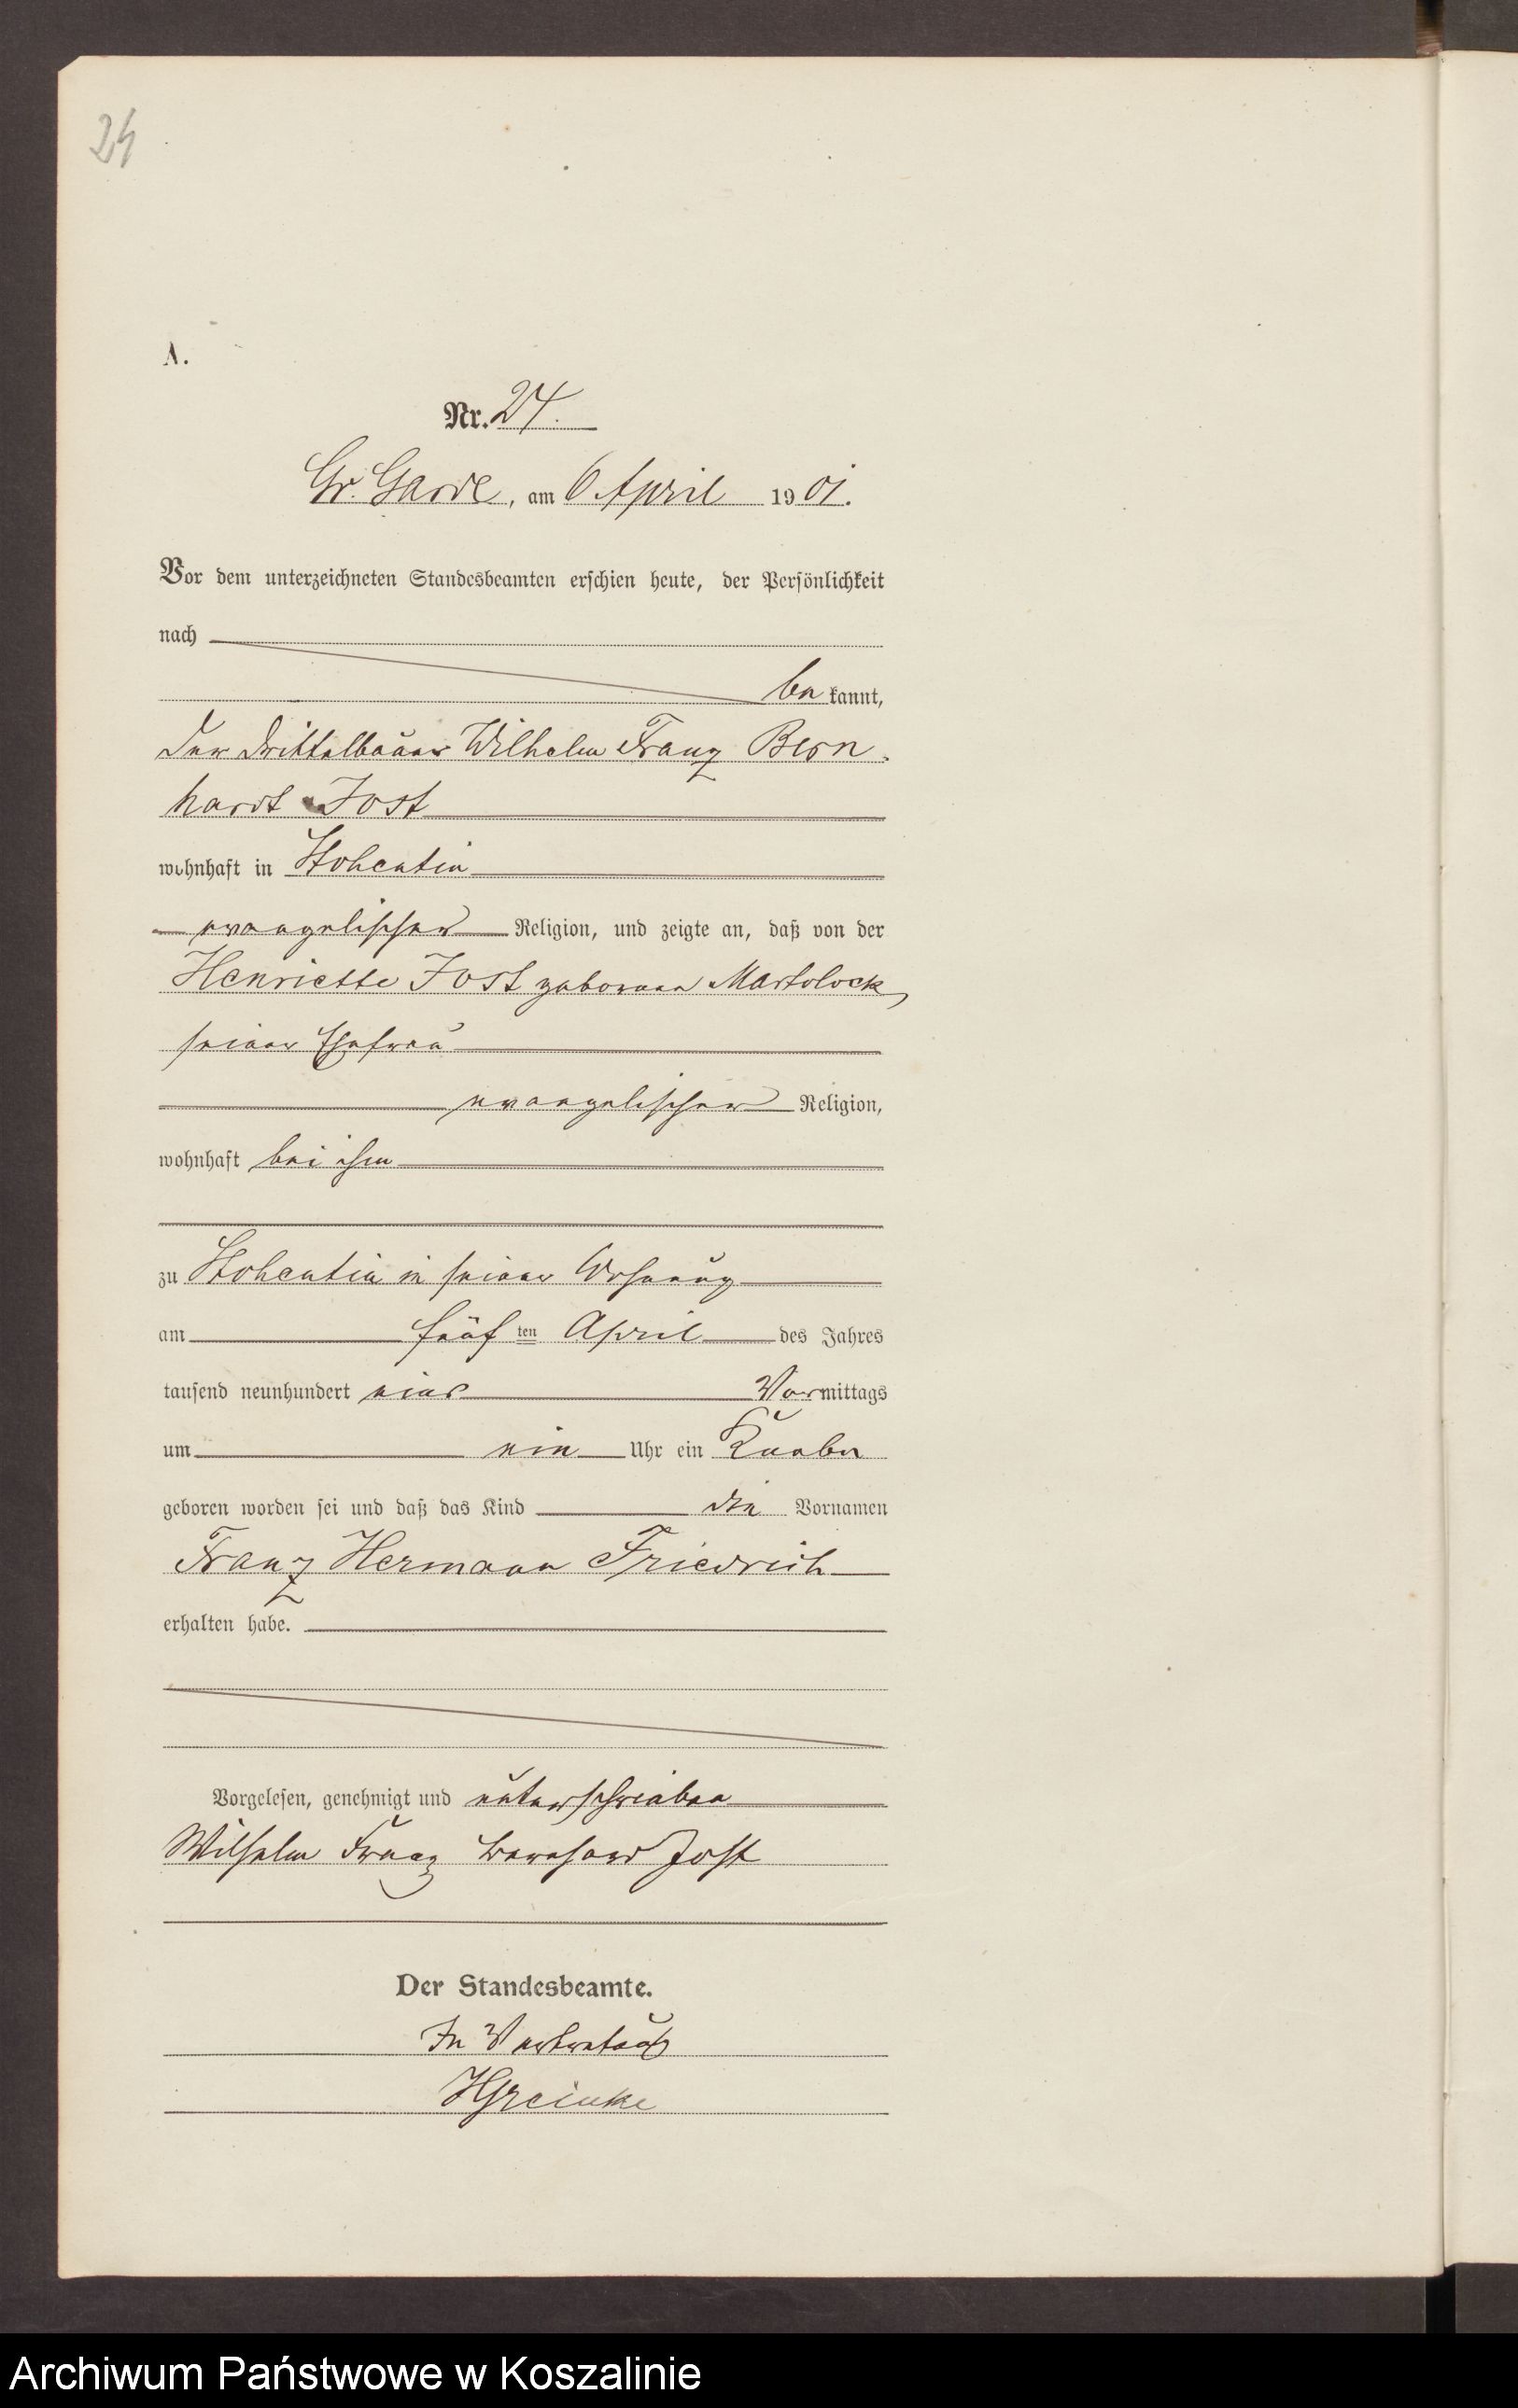 24
A.
Nr. 24.
Gr. Garde, am 6 April 1901.
Vor dem unterzeichneten Standesbeamten erschien heute, der Persönlichkeit
nach
bekannt,
der Drittelbauer Wilhelm Franz Bern-
hardt Jost
wohnhaft in Stohentin
evangelischer Religion, und zeigte an, daß von der
Henriette Jost geborenen Martolock,
seiner Ehefrau
evangelischer Religion,
wohnhaft bei ihm
zu Stohentin in seiner Wohnung
am fünften April des Jahres
tausend neunhundert eins Vormittags
um ein Uhr ein Knabe
geboren worden sei und daß das Kind die Vornamen
Franz Hermann Friedrich
erhalten habe.
Vorgelesen, genehmigt und unterschrieben
Wilhelm Franz Bernhard Jost
Der Standesbeamte.
In Vertretung
HGreinke
Archiwum Państwowe w Koszalinie